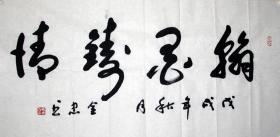 翰墨铸情
戊戌年秋月 金忠书